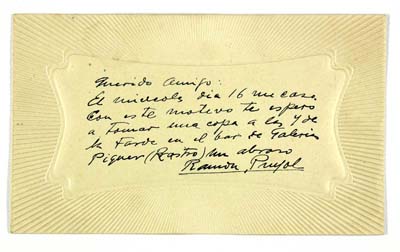 Querido Amigo:
El miercoles dia 16 me caso.
Con este motivo te espero
a tomar una copa a las 7 de
la tarde en el bar de Galerias
Piquer (Rastro) un abrazo
Ramón Pujol